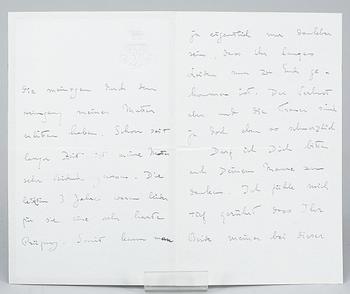 die meinigen durch den
meiner Mutter
haben. Schon seit
langer Zeit ist meine Mutter
sehr gewesen. Die
letzten 3 Jahre waren leider
für sie eine sehr harte
Prüfung. Somit kann man
ja eigentlich nur dankbar
sein, dass ihr langes
Leiden nun zu Ende ge-
kommen ist. Der Verlust
aber und die Trauer sind
ja doch eben so schmerzlich
Darf ich Dich bitten
auch Deinem Manne zu
danken. Ich fühle mich
gerührt dass Ihr
Beide meiner bei dieser